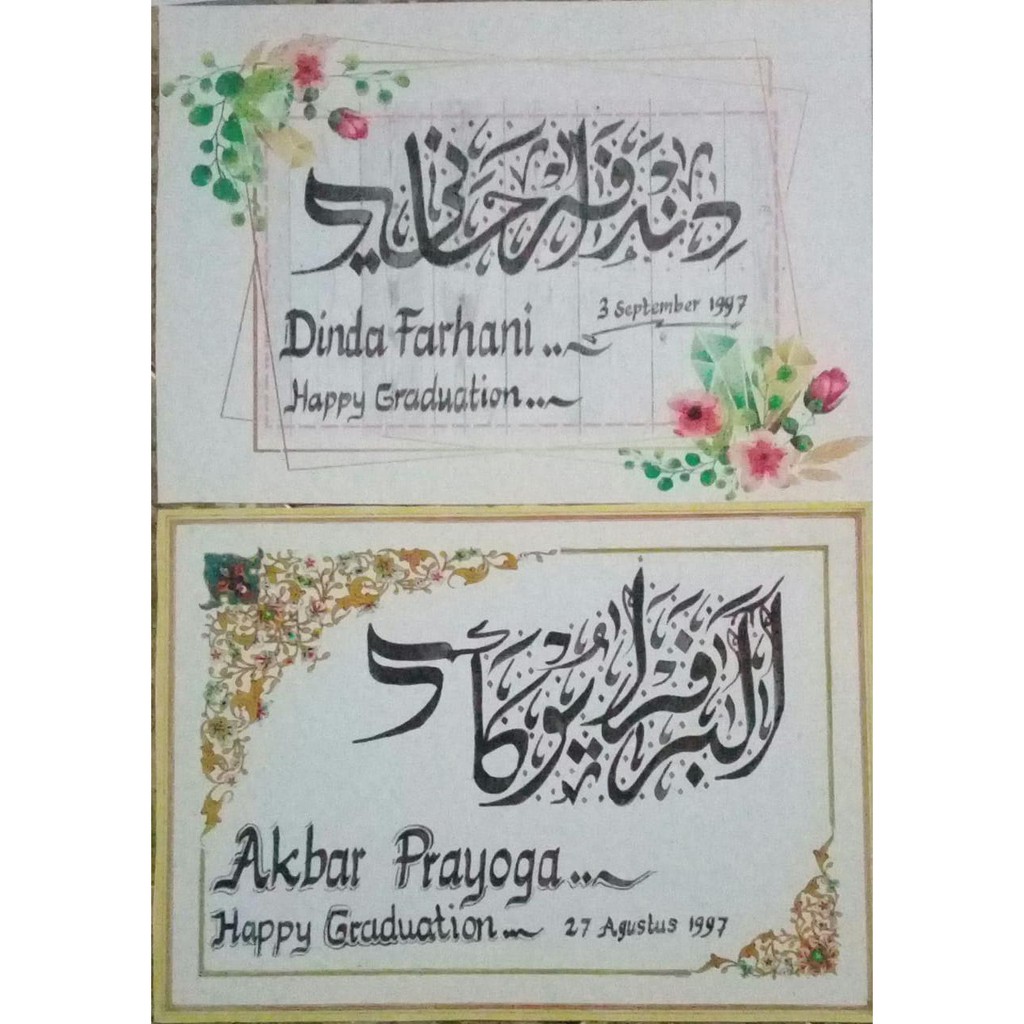 دند فرحاني
3 September 1997
Dinda Farhani..
Happy Graduation..
اكبر فرايوكا
Akbar Prayoga..
Happy Graduation..
27 Agustus 1997